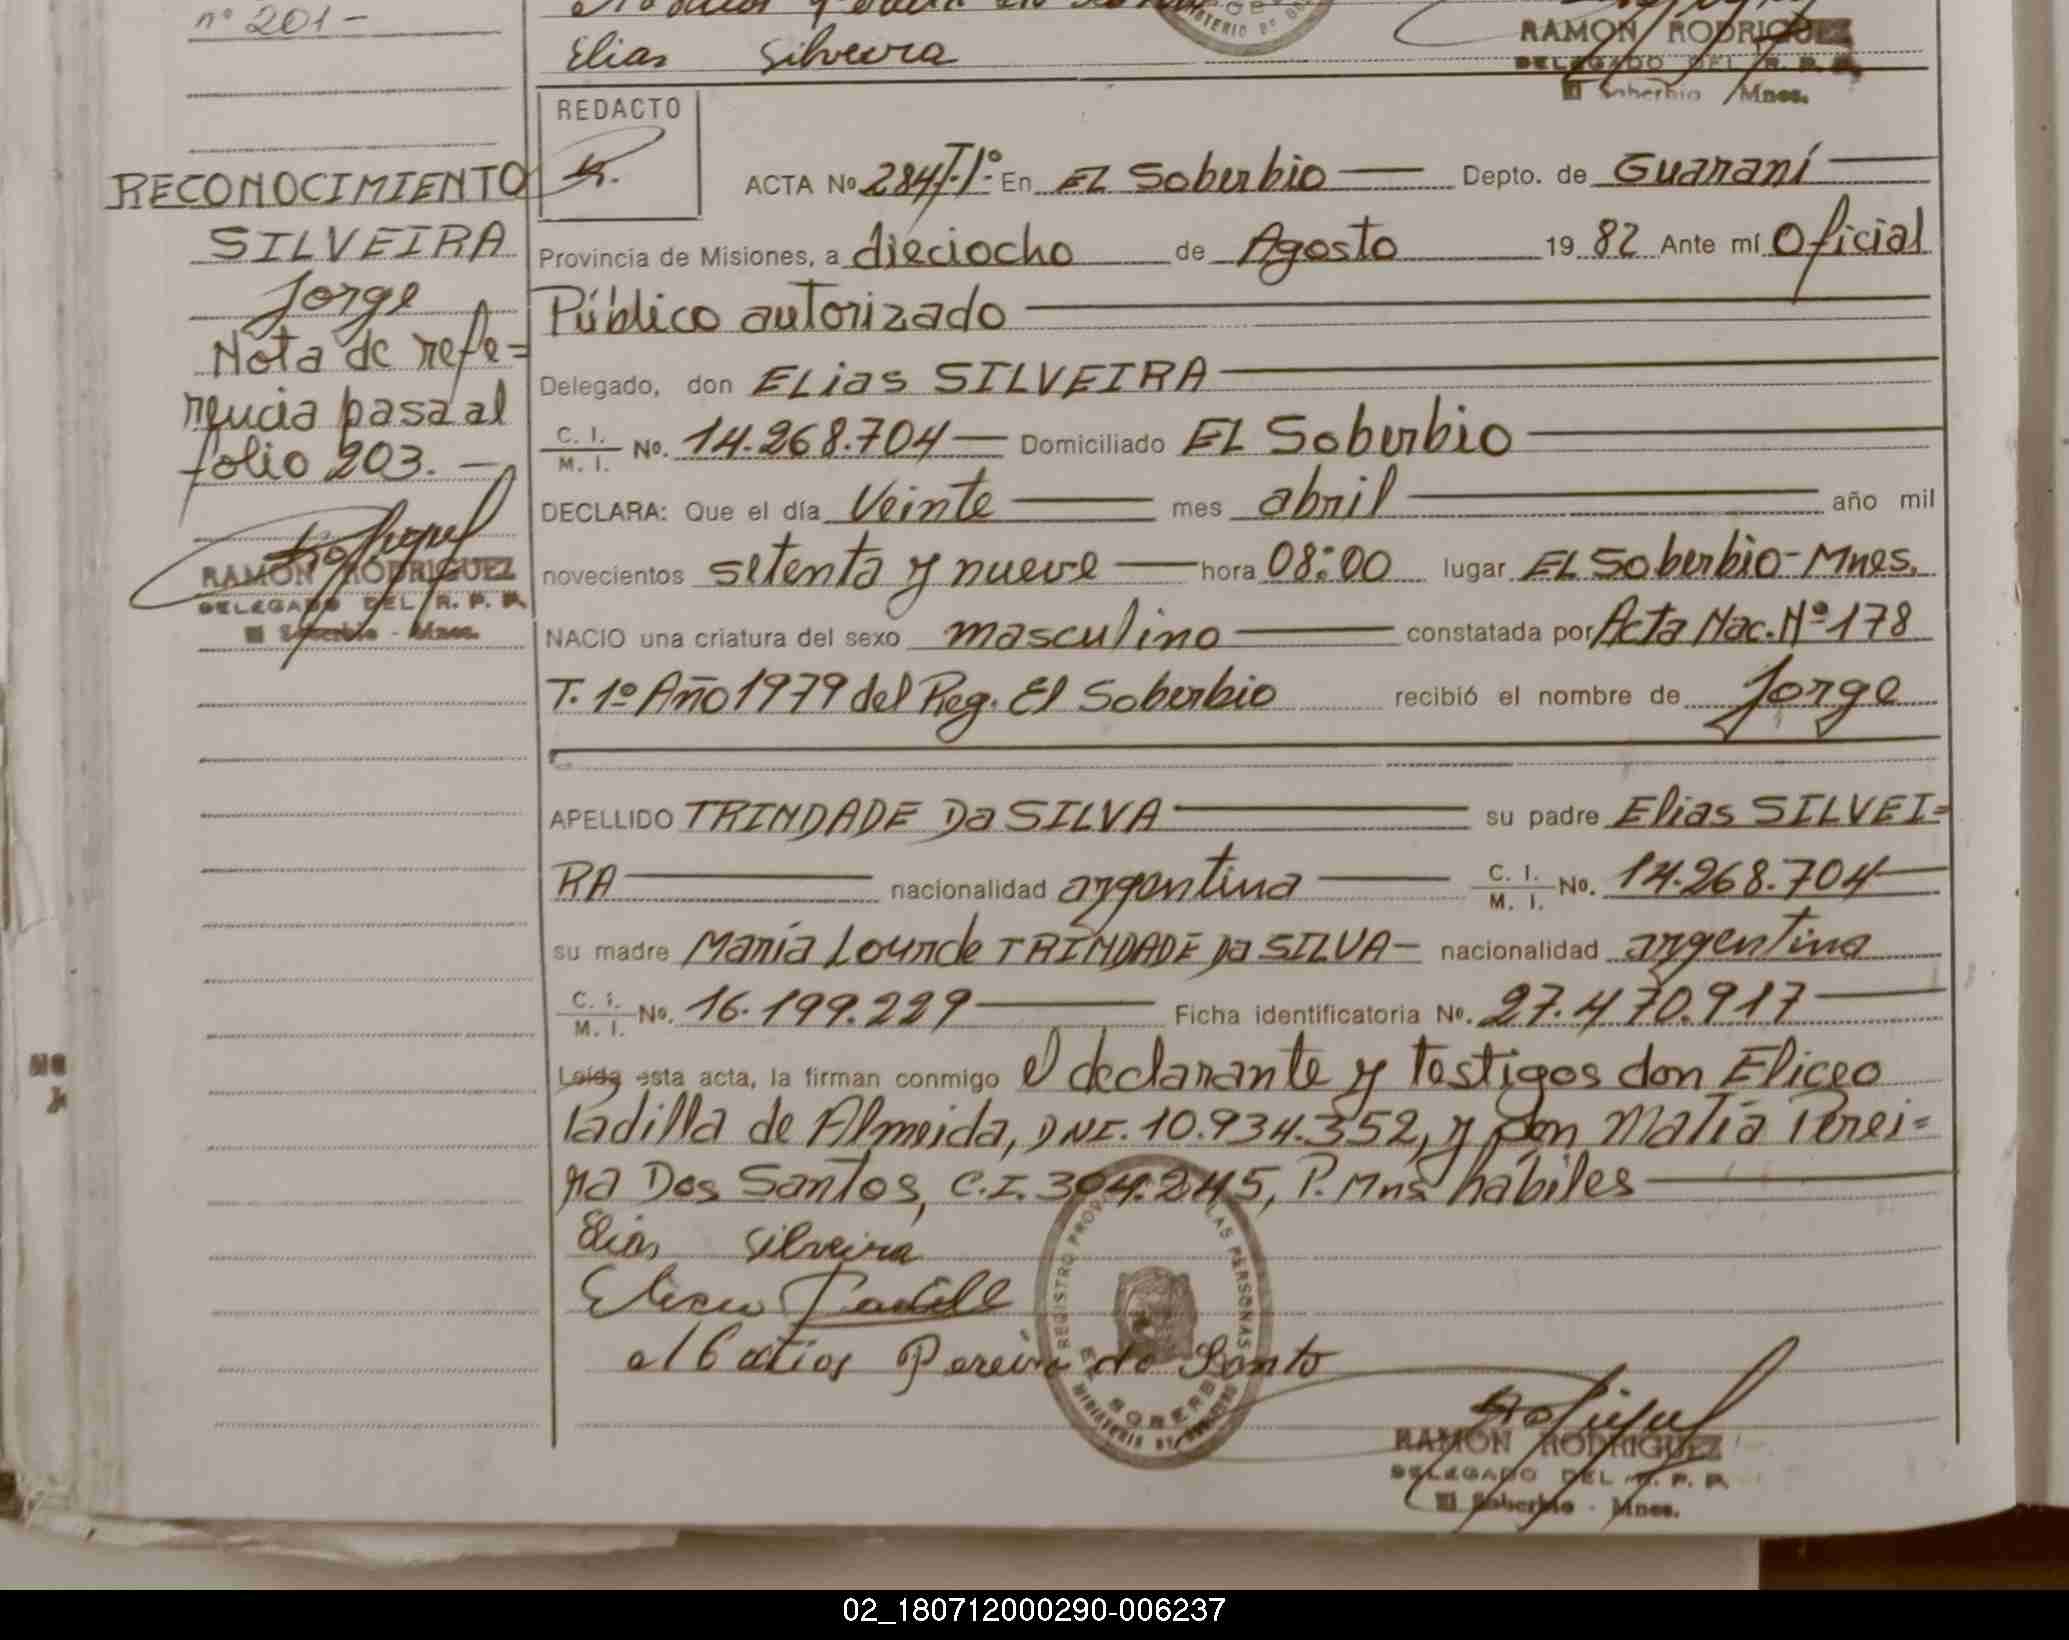 nº 201 -
Elias Silveira
RAMON RODRIGUEZ
DELEGADO DEL R. P. P.
El Soberbio Mnes.
REDACTO
RECONOCIMIENTO
SILVEIRA
Jorge
Nota de refe=
rencia pasa al
folio 203. -
RAMON RODRIGUEZ
DELEGADO DEL R. P. P.
El Soberbio - Mnes.
ACTA No 284/T.1º En El Soberbio Depto. de Guaraní
Provincia de Misiones, a dieciocho de Agosto 19 82 Ante mí Oficial
Público autorizado
Delegado, don Elias SILVEIRA
C. I. / M. I. No. 14.268.704 Domiciliado El Soberbio
DECLARA: Que el día Veinte mes abril año mil
novecientos setenta y nueve hora 08:00 lugar El Soberbio - Mnes.
NACIO una criatura del sexo masculino constatada por Acta Nac. Nº 178
T. 1º Año 1979 del Reg. El Soberbio recibió el nombre de Jorge
APELLIDO TRINDADE Da SILVA su padre Elias SILVEI=
RA nacionalidad argentina C. I. / M. I. No. 14.268.704
su madre María Lourde TRINDADE Da SILVA - nacionalidad argentina
C. I. / M. I. No. 16.199.229 Ficha identificatoria No. 27.470.917
Leída esta acta, la firman conmigo el declarante y testigos don Eliceo
Padilla de Almeida, DNI. 10.934.352, y don Matia Perei=
ra Dos Santos, C.I. 304.245, P. Mns hábiles
Elias Silveira
Matios Pereira do Santo
REGISTRO PROV LAS PERSONAS
EL SOBERBIO
MINISTERIO DE GOBIERNO
RAMON RODRIGUEZ
DELEGADO DEL R. P. P.
El Soberbio - Mnes.
02_180712000290-006237